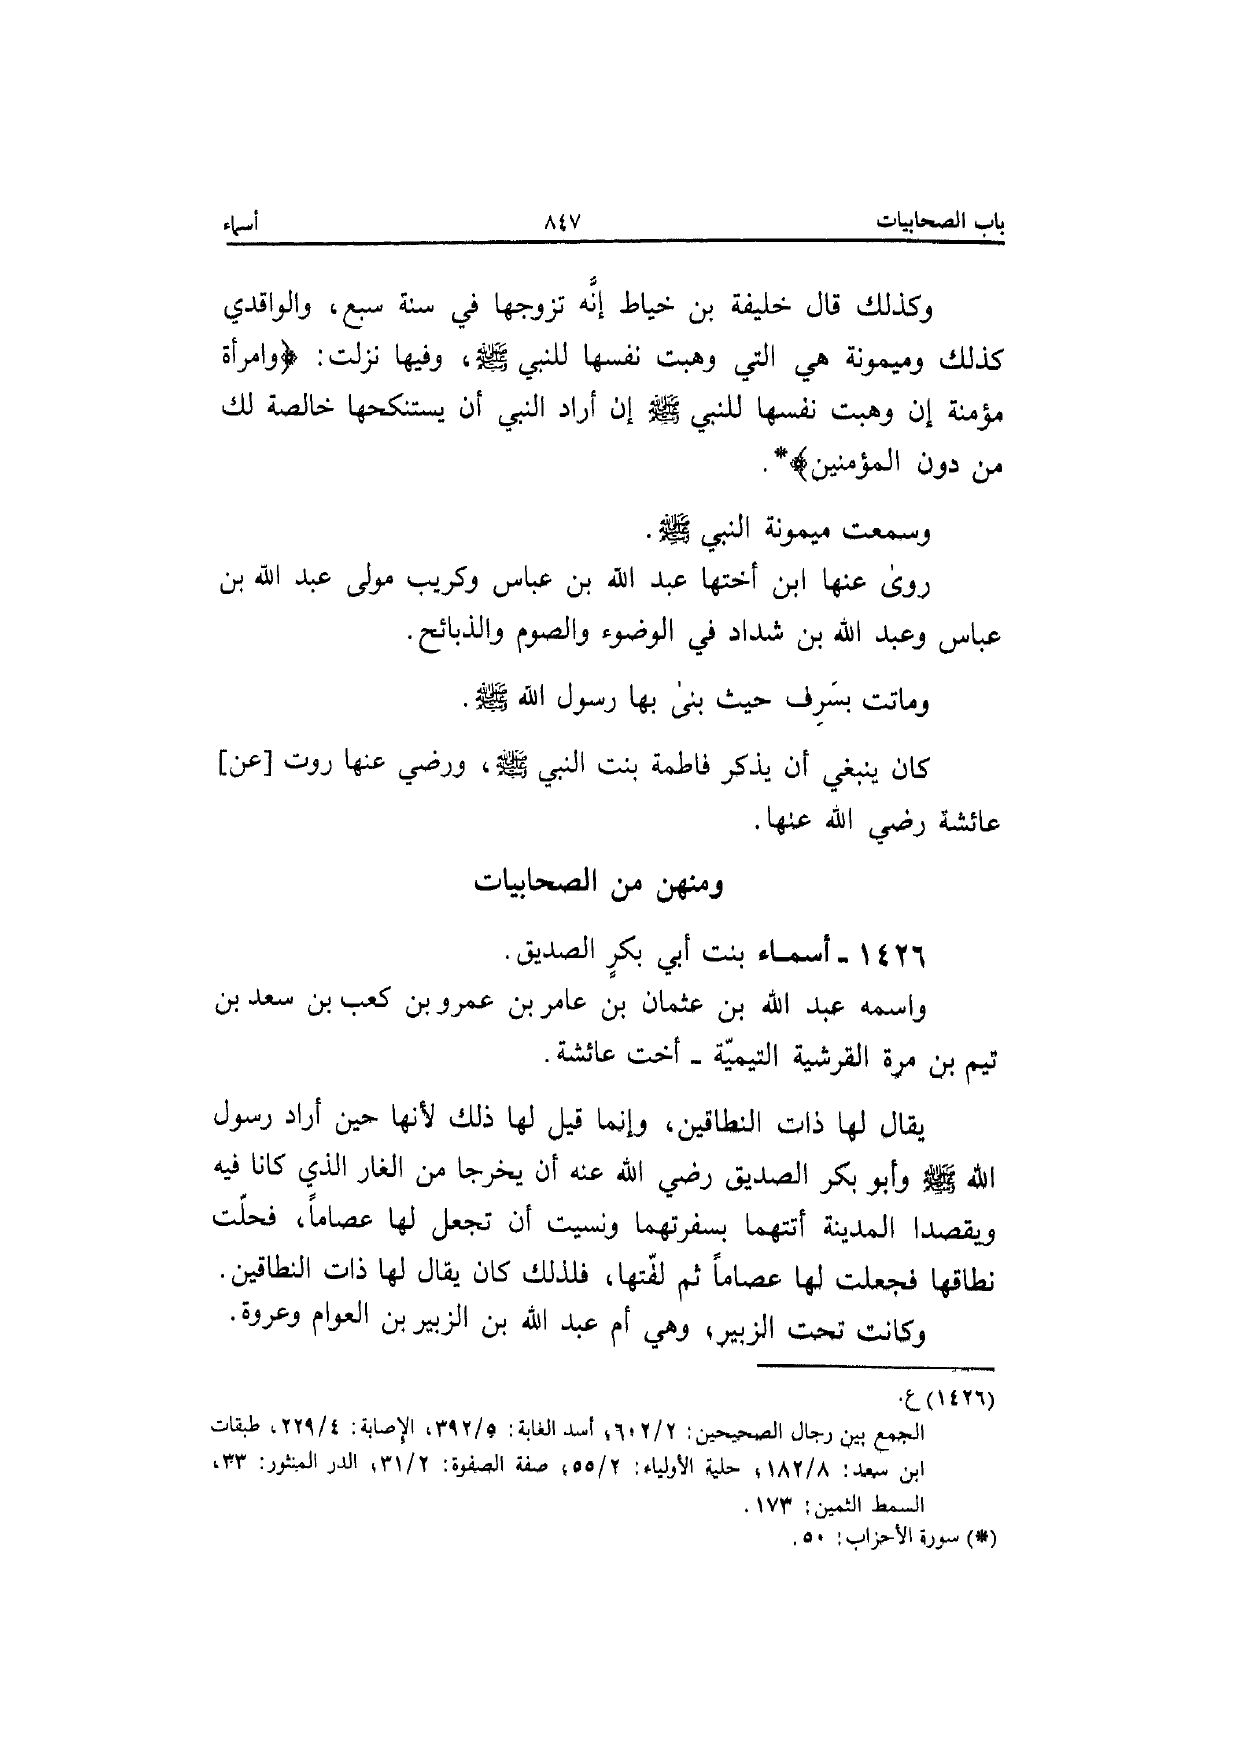 باب الصحابيات ٨٤٧ أسماء
وكذلك قال خليفة بن خياط إنَّه تزوجها في سنة سبع، والواقدي
كذلك وميمونة هي التي وهبت نفسها للنبي ﷺ، وفيها نزلت: ﴿وامرأة
مؤمنة إن وهبت نفسها للنبي ﷺ إن أراد النبي أن يستنكحها خالصة لك
من دون المؤمنين﴾*.
وسمعت ميمونة النبي ﷺ.
روىٰ عنها ابن أختها عبد الله بن عباس وكريب مولى عبد الله بن
عباس وعبد الله بن شداد في الوضوء والصوم والذبائح.
وماتت بسَرِف حيث بنىٰ بها رسول الله ﷺ.
كان ينبغي أن يذكر فاطمة بنت النبي ﷺ، ورضي عنها روت [عن]
عائشة رضي الله عنها.
ومنهن من الصحابيات
١٤٢٦ ـ أسماء بنت أبي بكرٍ الصديق.
واسمه عبد الله بن عثمان بن عامر بن عمرو بن كعب بن سعد بن
تيم بن مرة القرشية التيميّة ـ أخت عائشة.
يقال لها ذات النطاقين، وإنما قيل لها ذلك لأنها حين أراد رسول
الله ﷺ وأبو بكر الصديق رضي الله عنه أن يخرجا من الغار الذي كانا فيه
ويقصدا المدينة أتتهما بسفرتهما ونسيت أن تجعل لها عصاماً، فحلّت
نطاقها فجعلت لها عصاماً ثم لفّتها، فلذلك كان يقال لها ذات النطاقين.
وكانت تحت الزبير، وهي أم عبد الله بن الزبير بن العوام وعروة.
(١٤٢٦) ع.
الجمع بين رجال الصحيحين: ٦٠٢/٢، أسد الغابة: ٣٩٢/٥، الإصابة: ٢٢٩/٤، طبقات
ابن سعد: ١٨٢/٨، حلية الأولياء: ٥٥/٢، صفة الصفوة: ٣١/٢، الدر المنثور: ٣٣،
السمط الثمين: ١٧٣.
(*) سورة الأحزاب: ٥٠.